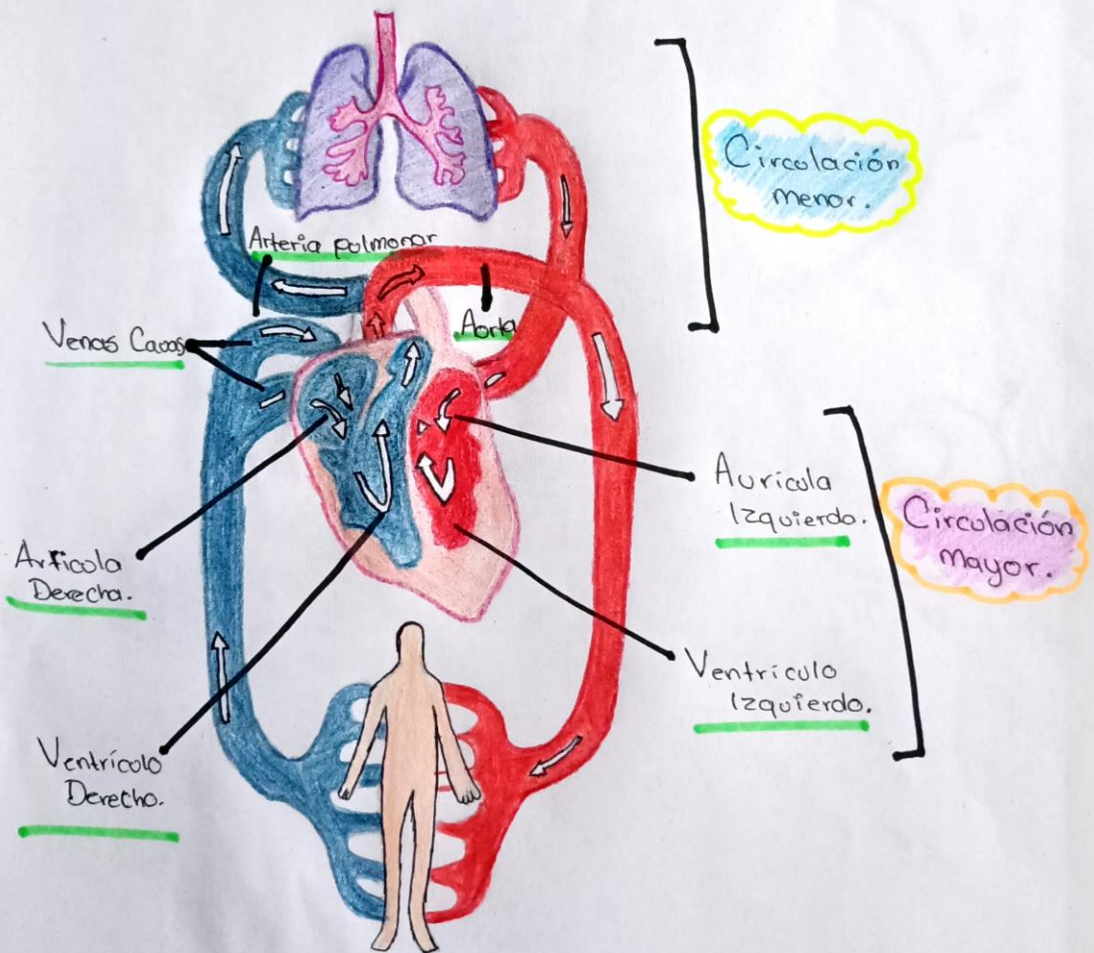 Circulación
menor.
Arteria pulmonar
Aorta
Venas Cavas
Aurícula
Izquierdo.
Circulación
mayor.
Artícola
Derecha.
Ventrículo
Izquierdo.
Ventrículo
Derecho.